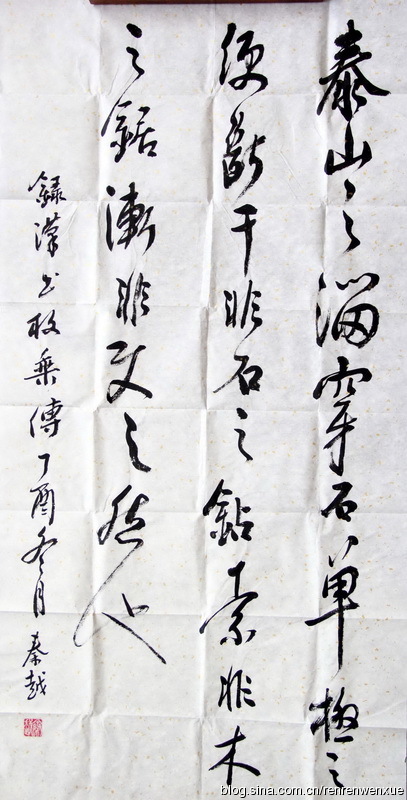 泰山之溜穿石單極之
綆斷干非石之鉆索非木
之鋸漸非使之然也
錄漢書枚乘傳丁酉冬月秦越
blog.sina.com.cn/renrenwenxue